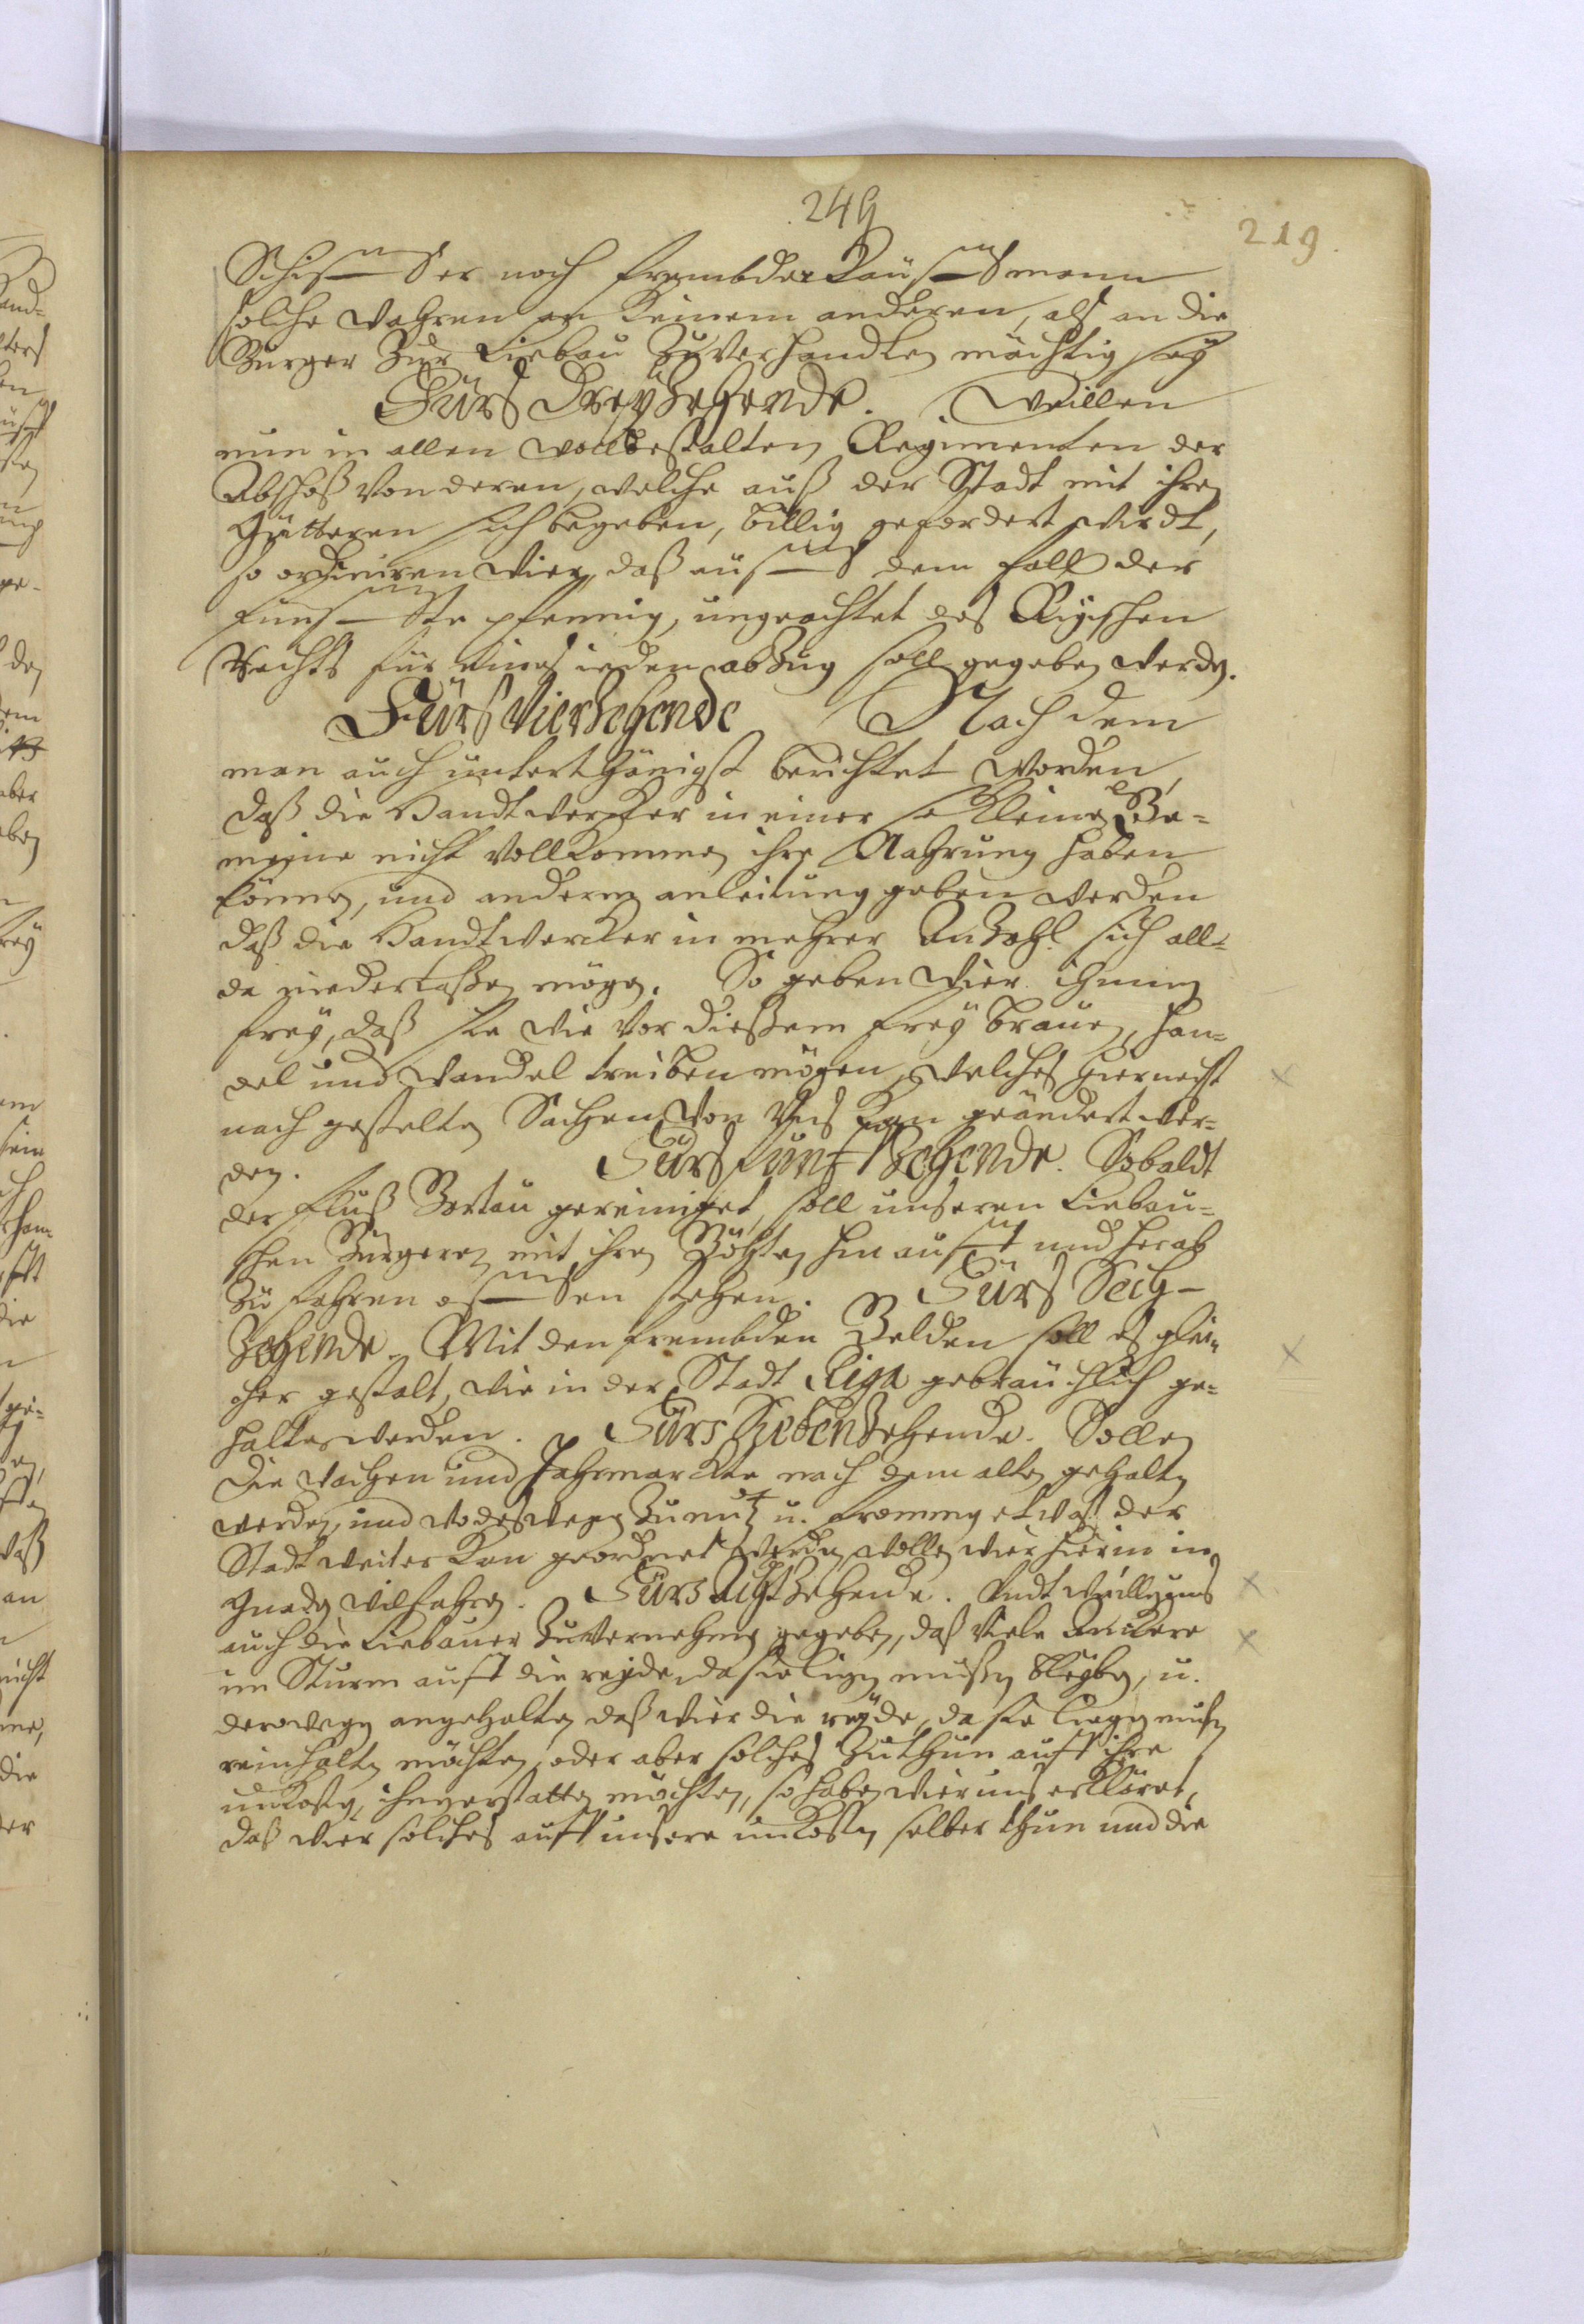 249
219.
Schiffer noch frembder Kauffmann
solche Wahren an keinem anderen, alß an die
Burger Zur Liebau Zuverhandlen mächtig sey
Fürs Dreyzehende. Weillen
nun in allen wollbestalten Regimenten der
Abschoß von deren, welche auß der Stadt mit ihren
Gütteren sich begeben, billig gefordert wirdt,
so ordiniren Wier, daß auff dem fall der
funffte pfennig, ungeachtet des Rigischen
Rechts für eines ieden abzug soll gegeben werden.
Fürs Vierzehende Nach dem
man auch unterthänigst berichtet worden,
daß die Handtwercker in einer so kleinen Ge-
meine nicht vollkommen ihre Nahrung haben
können, und anderen anleitung geben werden
daß die Handtwercker in mehrer Anzahl sich all-
da niederlaßen mögen. So geben Wier ihnen
frey, daß sie wie vor dießem frey brauen, han-
del und Wandel treiben mögen, welches hiernechst
nach gestelten Sachen von Uns kan geändert wer-
den. Fürs funffzehende. Sobaldt
der fluß Bartau gereiniget, soll unseren Liebau-
schen Bürgeren mit ihren Böhten hinauff und herab
Zu fahren offen stehen. Fürs Sech-
zehende. Mit den frembden Gelden soll es glei-
cher gestalt, wie in der Stadt Riga gebräuchlich ge-
halten werden. Fürs Siebenzehende. Sollen
die Wochen und Jahrmarckte nach dem alten gehalten
werden, und wo deßwegen Zu nutz u. frommen etwaß der
Stadt weiter kan geordnet werden, wollen wier hierin in
Gnaden wilfahren. Fürs Achtzehende. Undt weillen uns
auch die Liebauer Zuvernehmen gegeben, daß Viele Anckere
im Sturm auff die reyde, da sie ligen mußen bleyben, u.
derowegen angehalten daß wier die reyde, da sie liegen mußen
rein halten möchten, oder aber solches Zuthun auff ihre
unkosten, ihnen verstatten möchten, so haben wier uns erkläret,
daß wier solches auff unsere unkosten selber thun und die